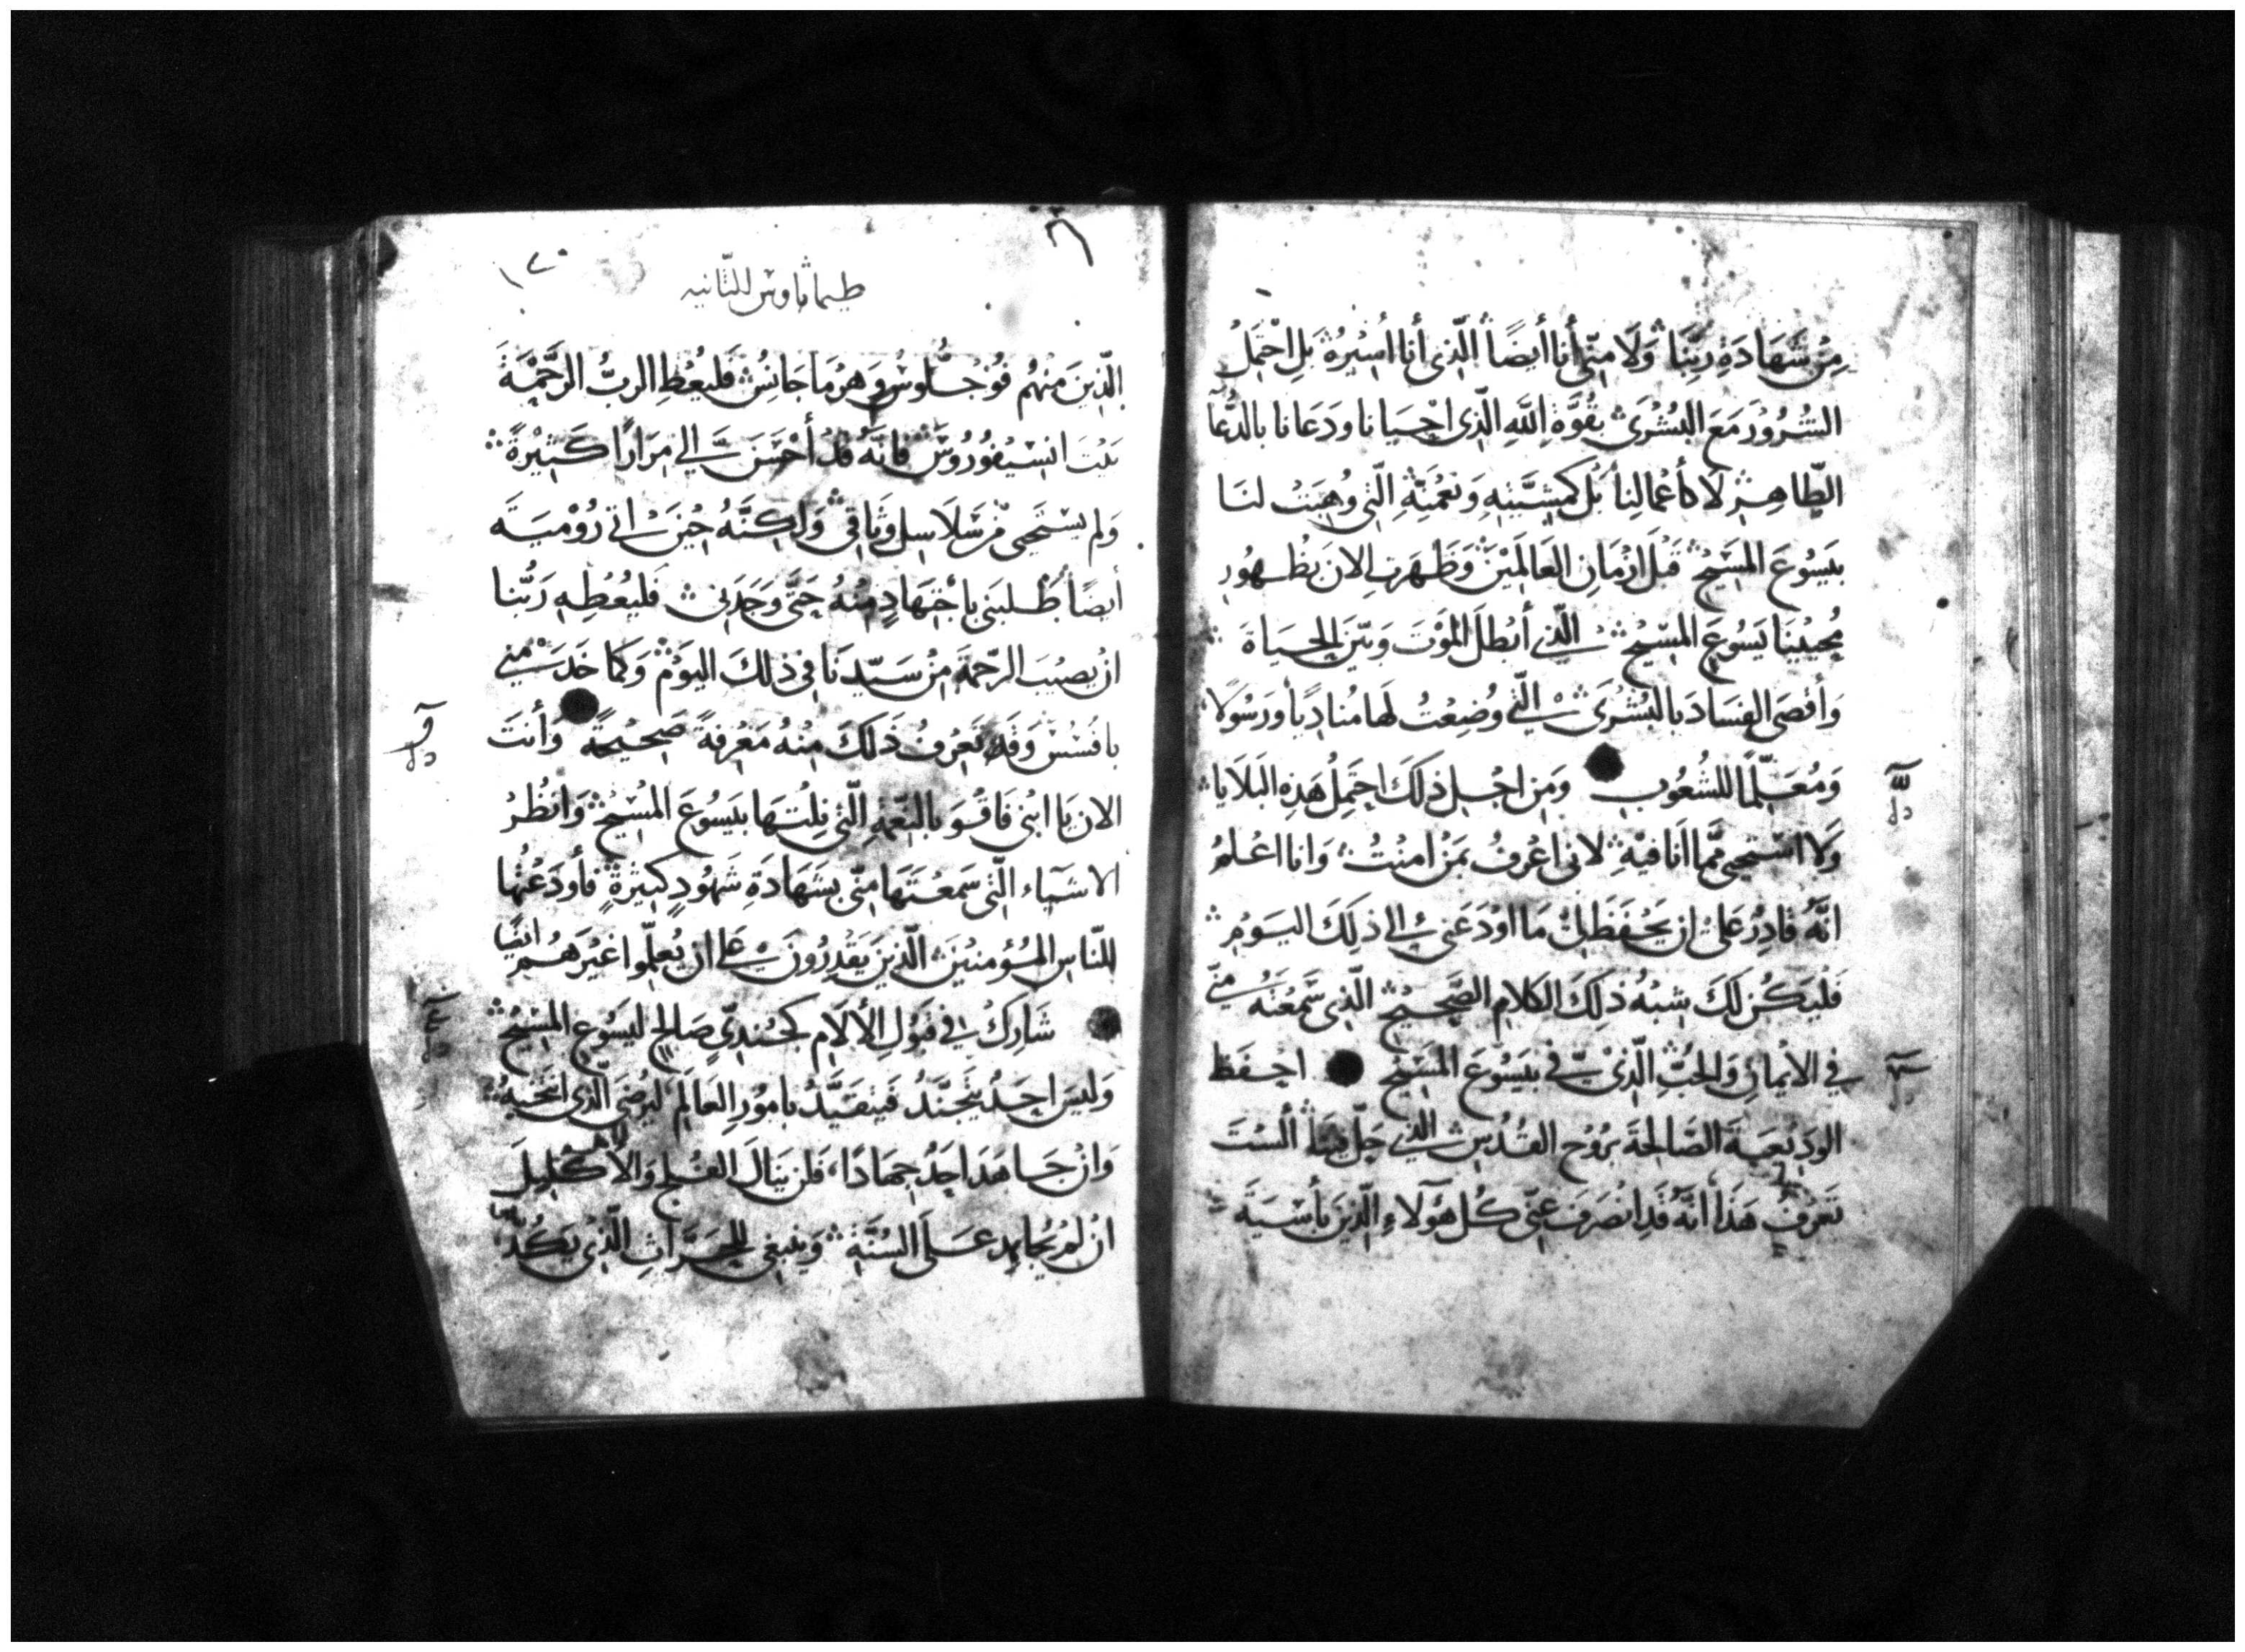 مِنْ شَهَادَةِ رَبِّنَا وَلَا مِنّى أنا أيضًا الّذى أنا أُسَيْرُهُ بَلِ احْتَمِلُ
الشُرُوُرَ مَعَ البُشْرَى بِقُوَّةِ اللَّهِ الّذى احْيَانا وَدَعَانا بالدُّعَآ
الطّاهِرِ لَا كأَعْمالِنا بَل كَمشِيَّتِهِ وَنِعْمَتِهِ الّتى وُهِبَتْ لنَا
بيَسُوعَ المَسِيْحِ قَبْلَ ازْمَانِ العَالَمِيْنَ وَظَهَرتِ الان بِظُهُوُرِ
مُحيْيِنَا يَسُوعَ المسِيْحِ الّذِى أبْطَلَ المَوْتَ وَبيّنَ الحيَاةَ
وَأقصَى الفِسَادَ بالبُشْرَى الّتى وُضِعْتُ لَها مُنَادِيًا وَرَسُولًا
وَمُعَلّمًا للشُعُوبِ وَمِن اجْلِ ذلكَ احْتَمِلُ هَذِهِ البَلَايا
وَلا اسْتَحيى مَّما انَا فيْهِ لانى اعْرِفُ بَمَنْ امنْتُ وَانا اعْلمُ
انَّهُ قادِرٌ عَلىْ ان يَحْفَظَ لِىْ مَا اوْدَعَنى الى ذلِكَ اليَوْمِ
فَلْيَكُن لَكَ شِبْهُ ذلِكَ الكَلامِ الصَّحِيْحِ الّذِى سَمِعْتَهُ مِنّى
فِي الايْمانِ وَالحُبِّ الّذىْ فىْ بيَسُوعَ المَسِيْحِ احْفَظِ
الوَدِيْعَةَ الصَّالِحَةَ بِرُوْحِ القُدُسِ الّذِى حَلّ فِيْنَا ألسْتَ
تَعْرِفُ هَذَا انَّهُ قَدِ انْصَرَفَ عنّى كُل هَؤلَاءِ الّذِينَ بأسْيَةَ
طيماثاوس الثانيه
الّذِينَ مِنْهُم فُوْجُلُّوسُ وَهرْمَاجَانِسُ فَليُعْطِ الربُّ الرَّحْمَةَ
بَيْتَ انسِيْفُوُرُوسَ فانَّهُ قَدْ أحْسَنَ الي مِرَارًا كَثِيْرةً
وَلم يسْتَحِى مْن سَلَاسِل وَثَاقِى وَلكِنَّهُ حِيْنَ اتى رُوْميَةَ
أيضًا طَلبَنى باجْتِهَادٍ مِنْهُ حَتَّى وَجَدَنى فَليُعْطِهِ رَبُّنا
انْ يصيْبَ الرّحْمةَ مِنْ سَيّدِنَا فى ذلكَ اليَوْمِ وَكَما خَدَمَنْى
بافسُسْ وَقَد تَعْرِفُ ذَلكَ مِنْهُ مَعْرِفةً صَحِيْحَةً وَأنتَ
الان يَا ابْنى فَاقْوَ بالنّعْمَةِ الّتى نِلْتَهَا بيَسُوعَ المَسِيْحِ وَانظُرْ
الاشيَاء الّتى سَمعْتَهَا مِنّى بِشَهَادَةِ شَهُودٍ كَثِيْرةٍ فأودَعْهُا
للنّاسِ المُؤمنيْنَ الّذِينَ يَقْدِرُونَ عَلى ان يُعلّموا غيْرَهُم ايضًا
شَارِكْ فى قَبُوْلِ الألَامِ كَجُنْدِىّ صَالحٍ ليَسُوعِ المَسِيْحِ
وَليسَ احَدٌ يتَجَنَّدُ فَيتقيَّدُ بامُوْرِ العَالَمِ ليُرْضِى الّذِى انتَخَبهُ
وَانْ جَاهَدَ احَدٌ جِهَادًا فَلَن يَنالَ الفُلجَ وَالاكْليلَ
انْ لم يُجاهِد عَلَى السُنَّةِ وَينبغى للحرَّاثِ الّذى يَكُدّ